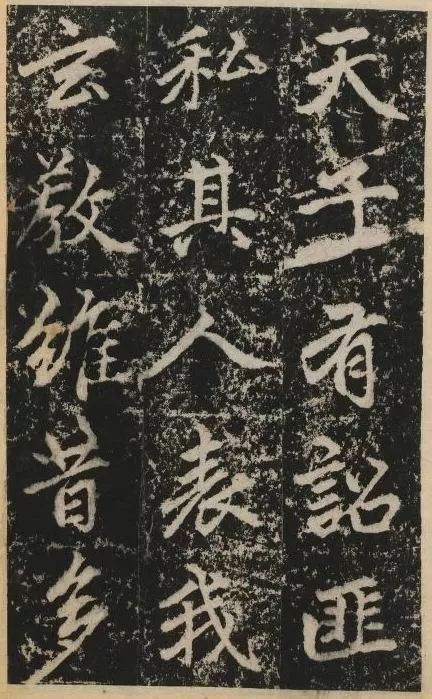 天子有詔匪
私其人表我
玄教維昔多